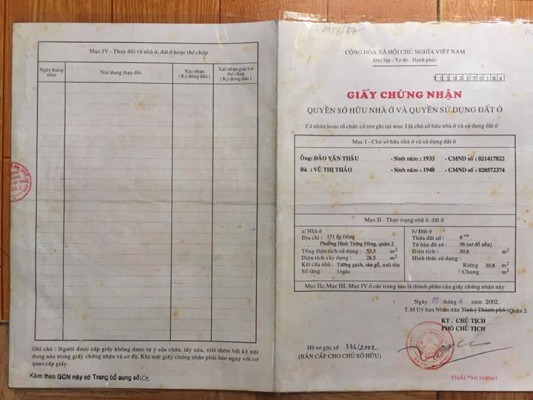 Mục IV - Thay đổi về nhà ở, đất ở hoặc thế chấp
Ngày tháng năm
Nội dung thay đổi
Xác nhận (Ký đóng dấu)
Xác nhận giải trừ thế chấp (Ký đóng dấu)
Ghi chú : Người được cấp giấy không được tự ý sửa chữa, tẩy xóa, viết thêm bất kỳ nội
dung nào trong giấy chứng nhận và sơ đồ. Khi mất giấy chứng nhận phải báo ngay với cơ
quan cấp giấy.
Kèm theo GCN này có Trang bổ sung số:
CỘNG HÒA XÃ HỘI CHỦ NGHĨA VIỆT NAM
Độc lập - Tự do - Hạnh phúc
GIẤY CHỨNG NHẬN
QUYỀN SỞ HỮU NHÀ Ở VÀ QUYỀN SỬ DỤNG ĐẤT Ở
Cá nhân hoặc tổ chức có tên ghi tại mục I là chủ sở hữu nhà ở và sử dụng đất ở
Mục I - Chủ sở hữu nhà ở và sử dụng đất ở
Ông: ĐÀO VĂN THÂU - Sinh năm : 1933 - CMND số : 021417822
Bà : VŨ THỊ THẢO - Sinh năm : 1940 - CMND số : 020572374
Mục II - Thực trạng nhà ở, đất ở
a/ Nhà ở b/ Đất ở
Địa chỉ : 171 ấp Đông Thửa đất số :
Phường Bình Trưng Đông, quận 2. Tờ bản đồ số : 06 (sơ đồ nền)
Tổng diện tích sử dụng : 53,3 m2 Diện tích : 39,8 m2
Diện tích xây dựng : 28,5 m2 Hình thức sử dụng :
Kết cấu nhà : Tường gạch, sàn gỗ, mái tôn Riêng : 39,8 m2
Số tầng : Chung : m2
Mục IIc, Mục III, Mục IV ở các trang sau là thành phần của giấy chứng nhận này
Ngày tháng năm 2002.
T.M Uỷ ban Nhân dân Tỉnh ( Thành phố ) Quận 2.
KT . CHỦ TỊCH
PHÓ CHỦ TỊCH
Hồ sơ gốc số
(BẢN CẤP CHO CHỦ SỞ HỮU)